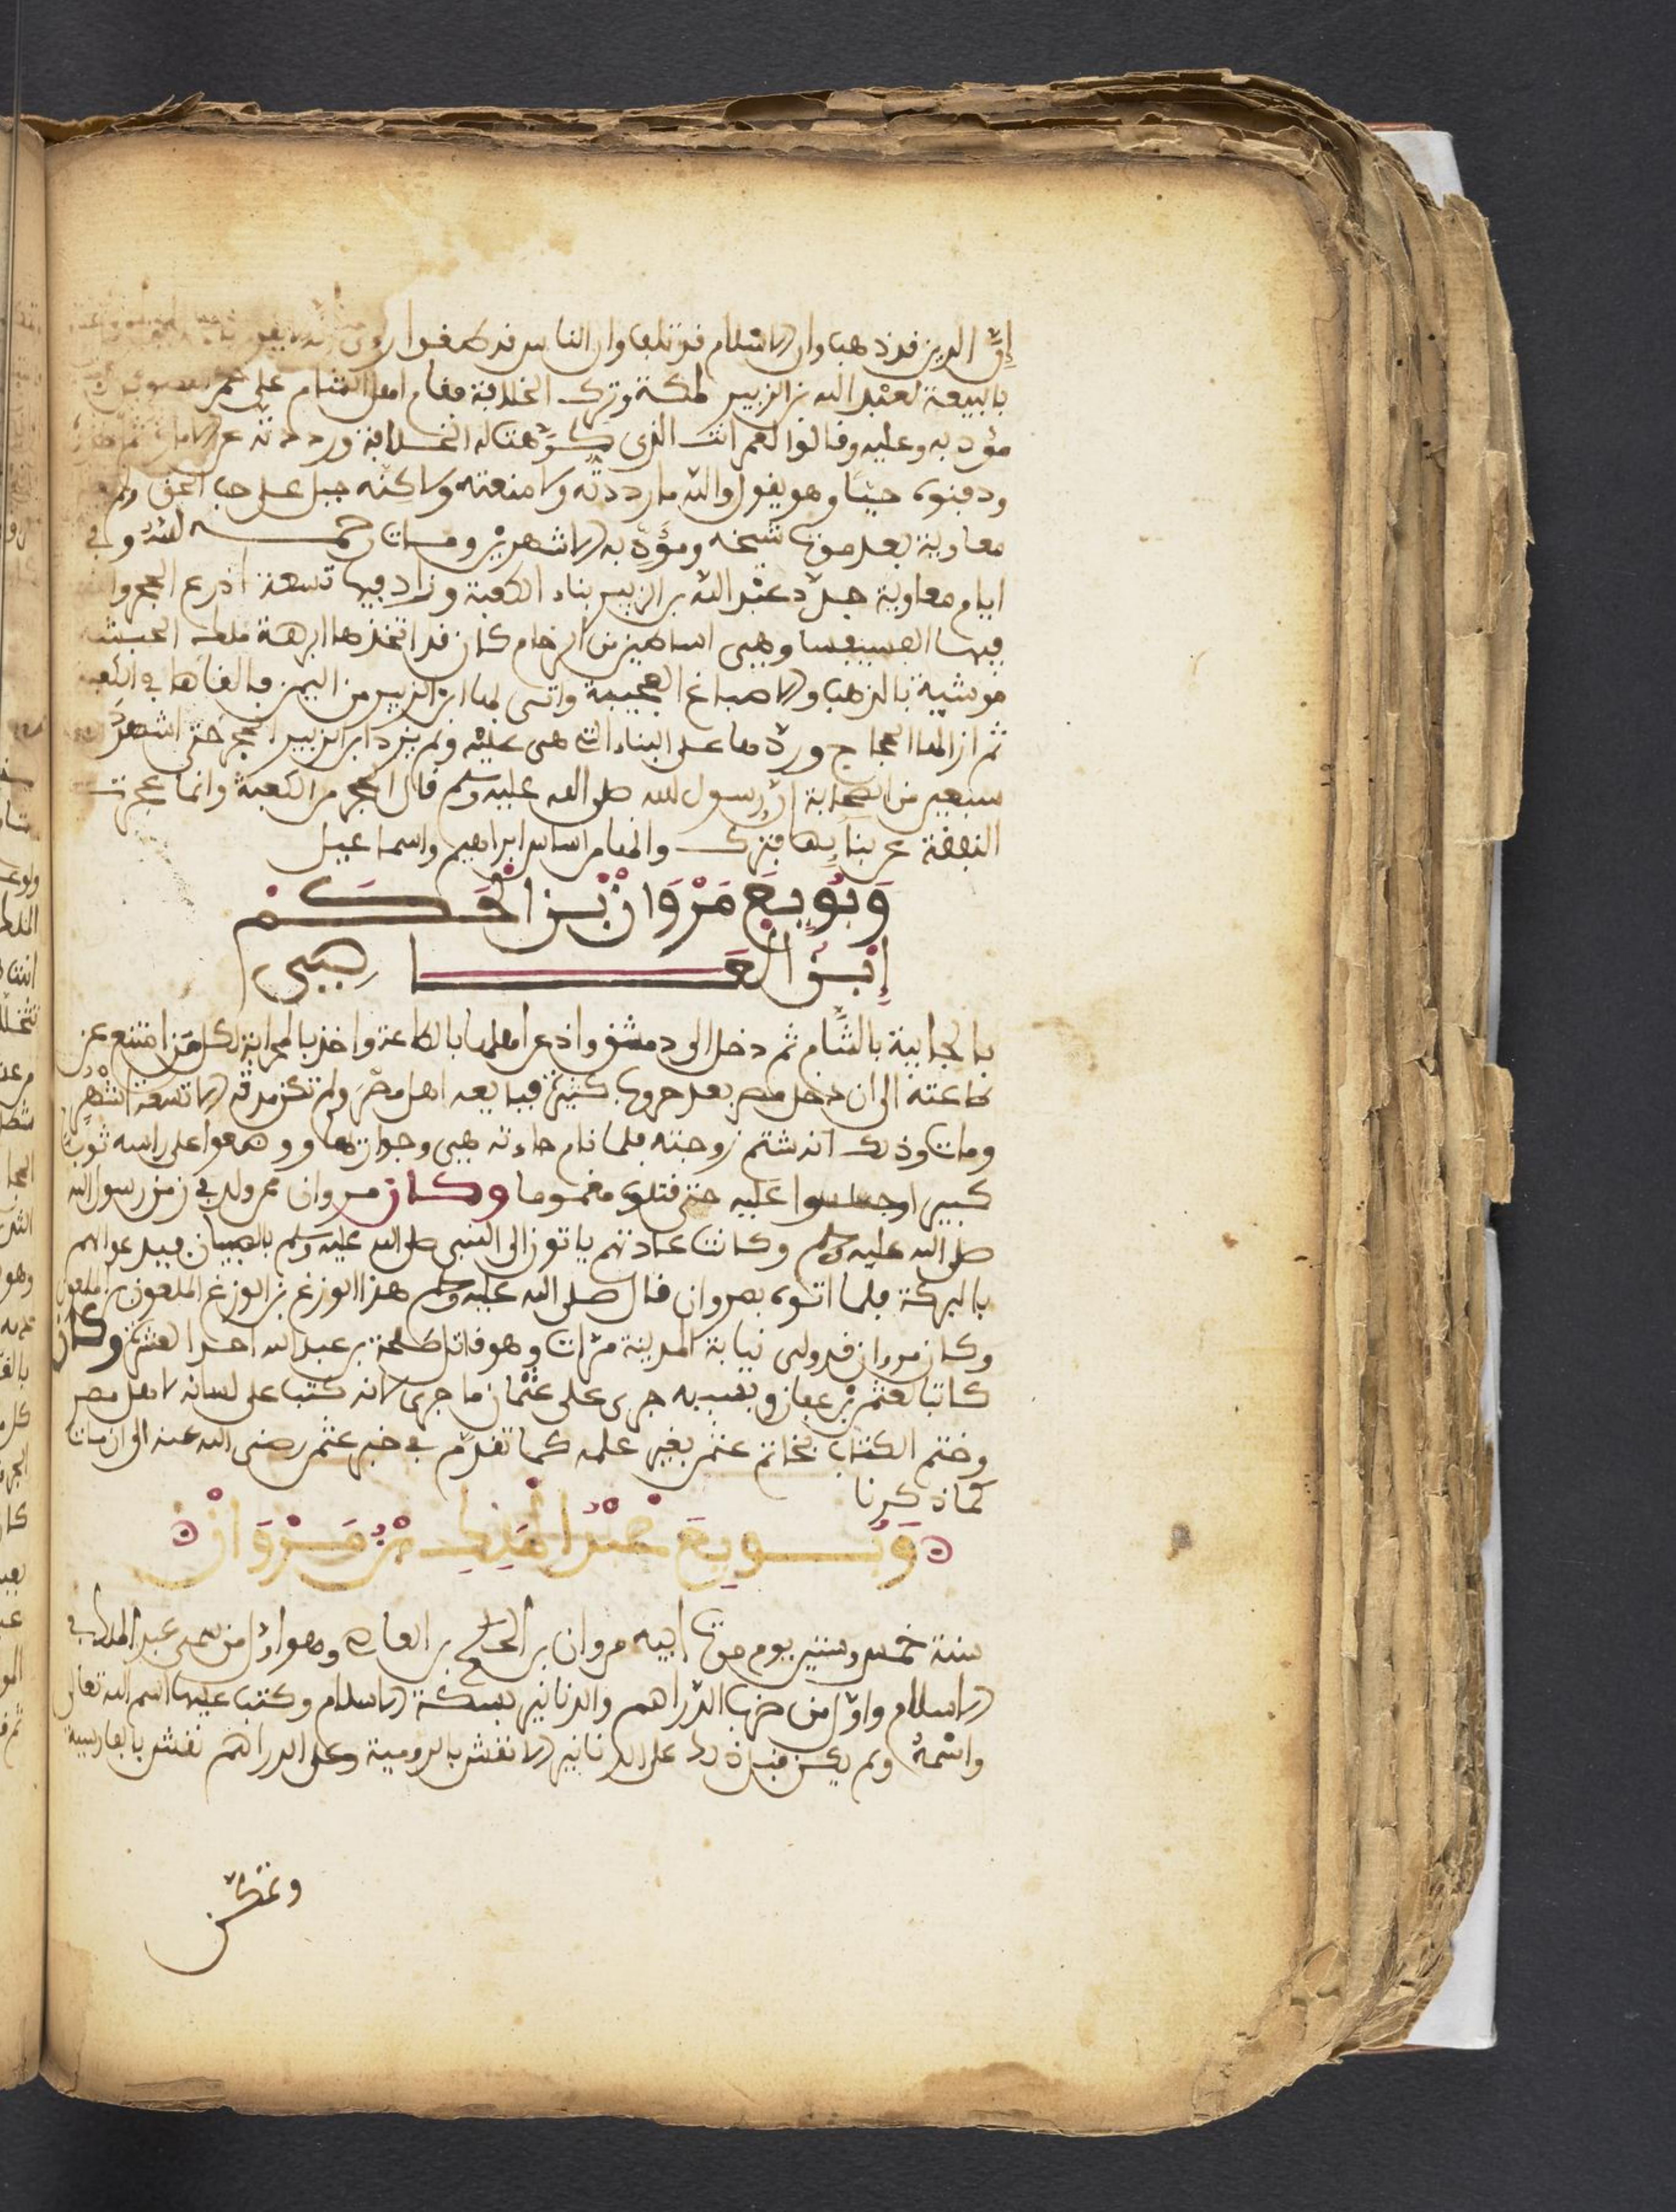 إنّ الدين قد ذهب وان الاسلام قد تلف وان الناس قد طغوا
بالبيعة لعبد الله بن الزبير لمكة وترك الخلافة فقام اهل الشام على عمر
مؤدبه وعليه وقالوا لعمر انت الذي كرّهت له الخلافة ورددته عن
ودفنوه حيّا وهو يقول والله ما رددته ولا منعته ولاكنّه جبل على حب الحق ولم
معاوية بعد موت شيخه ومؤدّبه الا شهرين ومات رحمه الله وفي
ايام معاوية جدّد عبد الله بن الزبير بناء الكعبة وزاد فيها تسعة اذرع الحجر و
فيها الفسيفسا وهي اساطين من الرخام كان قد اتخذها ابرهة ملك الحبشة
موشية بالذهب والاصباغ العجيبة واتى لها ابن الزبير من اليمن فالقاها في الكعبة
ثم ازالها الحجاج وردّها على البناء الذي هي عليه ولم يزد ابن الزبير الحجر حتى اشهد
سبعين من الصحابة انّ رسول الله صلى الله عليه وسلم قال الحجر من الكعبة وانما عجزت
النفقة عن بنايها فترك والمقام اساس ابراهيم واسماعيل
وَبُويِعَ مَرْوَانْ بْن الْحَكَمْ
اِبْن الْعَاصِي
بالجابية بالشّام ثم دخل الى دمشق واذعن اهلها بالطاعة واخذ بالمحاربة لكل من امتنع عن
طاعته الى ان دخل مصر بعد حروب كثيرة فبايعه اهل مصر ولم تكن مدته الا تسعة اشهر
ومات وذلك انه شتم زوجته فلما نام جاءته هي وجوار لها ووضعوا على راسه ثوبا
كبيرا وجلسوا عليه حتى قتلوه مغموما وكان مروان ممن ولد في زمن رسول الله
صلى الله عليه وسلم وكانت عادتهم ياتون الى النبي صلى الله عليه وسلم بالصبيان فيدعوا لهم
بالبركة فلما اتوه بمروان قال صلى الله عليه وسلم هذا الوزغ بن الوزغ الملعون بن الملعون
وكان مروان قد ولى نيابة المدينة مرّات وهو قاتل طلحة بن عبد الله احد العشرة وكان
كاتبا لعثمن بن عفان وبسببه جرى على عثمان ما جرى لانه كتب على لسانه لاهل مصر
وختم الكتاب بخاتم عثمن بغير علمه كما تقدّم في خبر عثمن رضي الله عنه الى ان مات
كما ذكرنا
وَبُويِعَ عَبْدُ الْمَلِكِ بْنُ مَرْوَانْ
سنة خمس وستين يوم موت ابيه مروان بن الحكم بن العاص وهو اوّل من سمى عبد الملك في
الاسلام واوّل من ضرب الدّراهم والدنانير بسكّة الاسلام وكتب عليها اسم الله تعالى
واسْمهُ ولم يكن قبل ذلك على الدنانير الا نقش بالرومية وعلى الدراهم نقش بالفارسية
وتمكّن